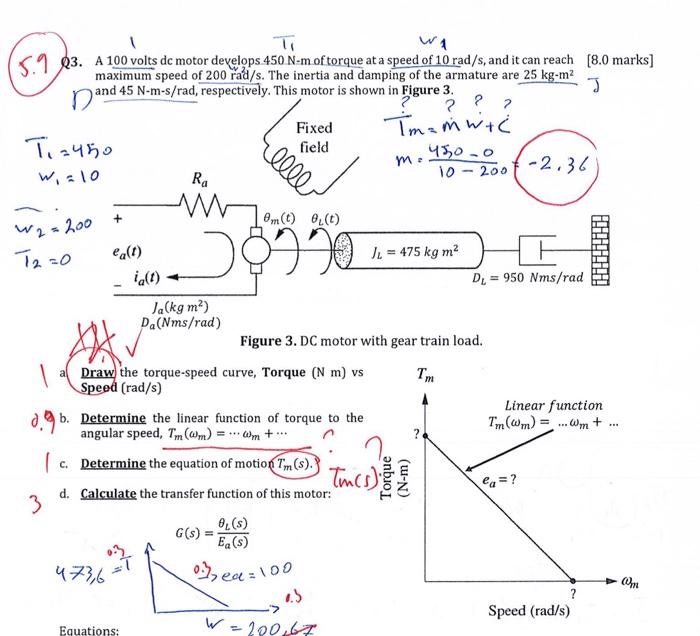 1 T₁ w₁
5.9 Q3. A 100 volts dc motor develops 450 N-m of torque at a speed of 10 rad/s, and it can reach [8.0 marks]
w₂
maximum speed of 200 rad/s. The inertia and damping of the armature are 25 kg-m²
D and 45 N-m-s/rad, respectively. This motor is shown in Figure 3. J
? ? ? ?
Fixed
field
Tm = m w + c
T₁ = 450
w₁ = 10
m = 450 - 0 / 10 - 200 = -2.36
Rₐ
w₂ = 200
T₂ = 0
+ θₘ(t) θ_L(t)
eₐ(t) J_L = 475 kg m²
– iₐ(t) D_L = 950 Nms/rad
Jₐ(kg m²)
Dₐ(Nms/rad)
Figure 3. DC motor with gear train load.
1 a. Draw the torque-speed curve, Torque (N m) vs
Speed (rad/s)
0.9 b. Determine the linear function of torque to the
angular speed, Tₘ(ωₘ) = ··· ωₘ + ···
? ?
1 c. Determine the equation of motion Tₘ(s). Tm(s)
3 d. Calculate the transfer function of this motor:
G(s) = θ_L(s) / Eₐ(s)
0.3
473,6 = T
0.3 ea = 100
0.3
w = 200,67
Equations:
Tₘ
Linear function
Tₘ(ωₘ) = ...ωₘ + ...
?
Torque
(N-m)
eₐ = ?
ωₘ
?
Speed (rad/s)